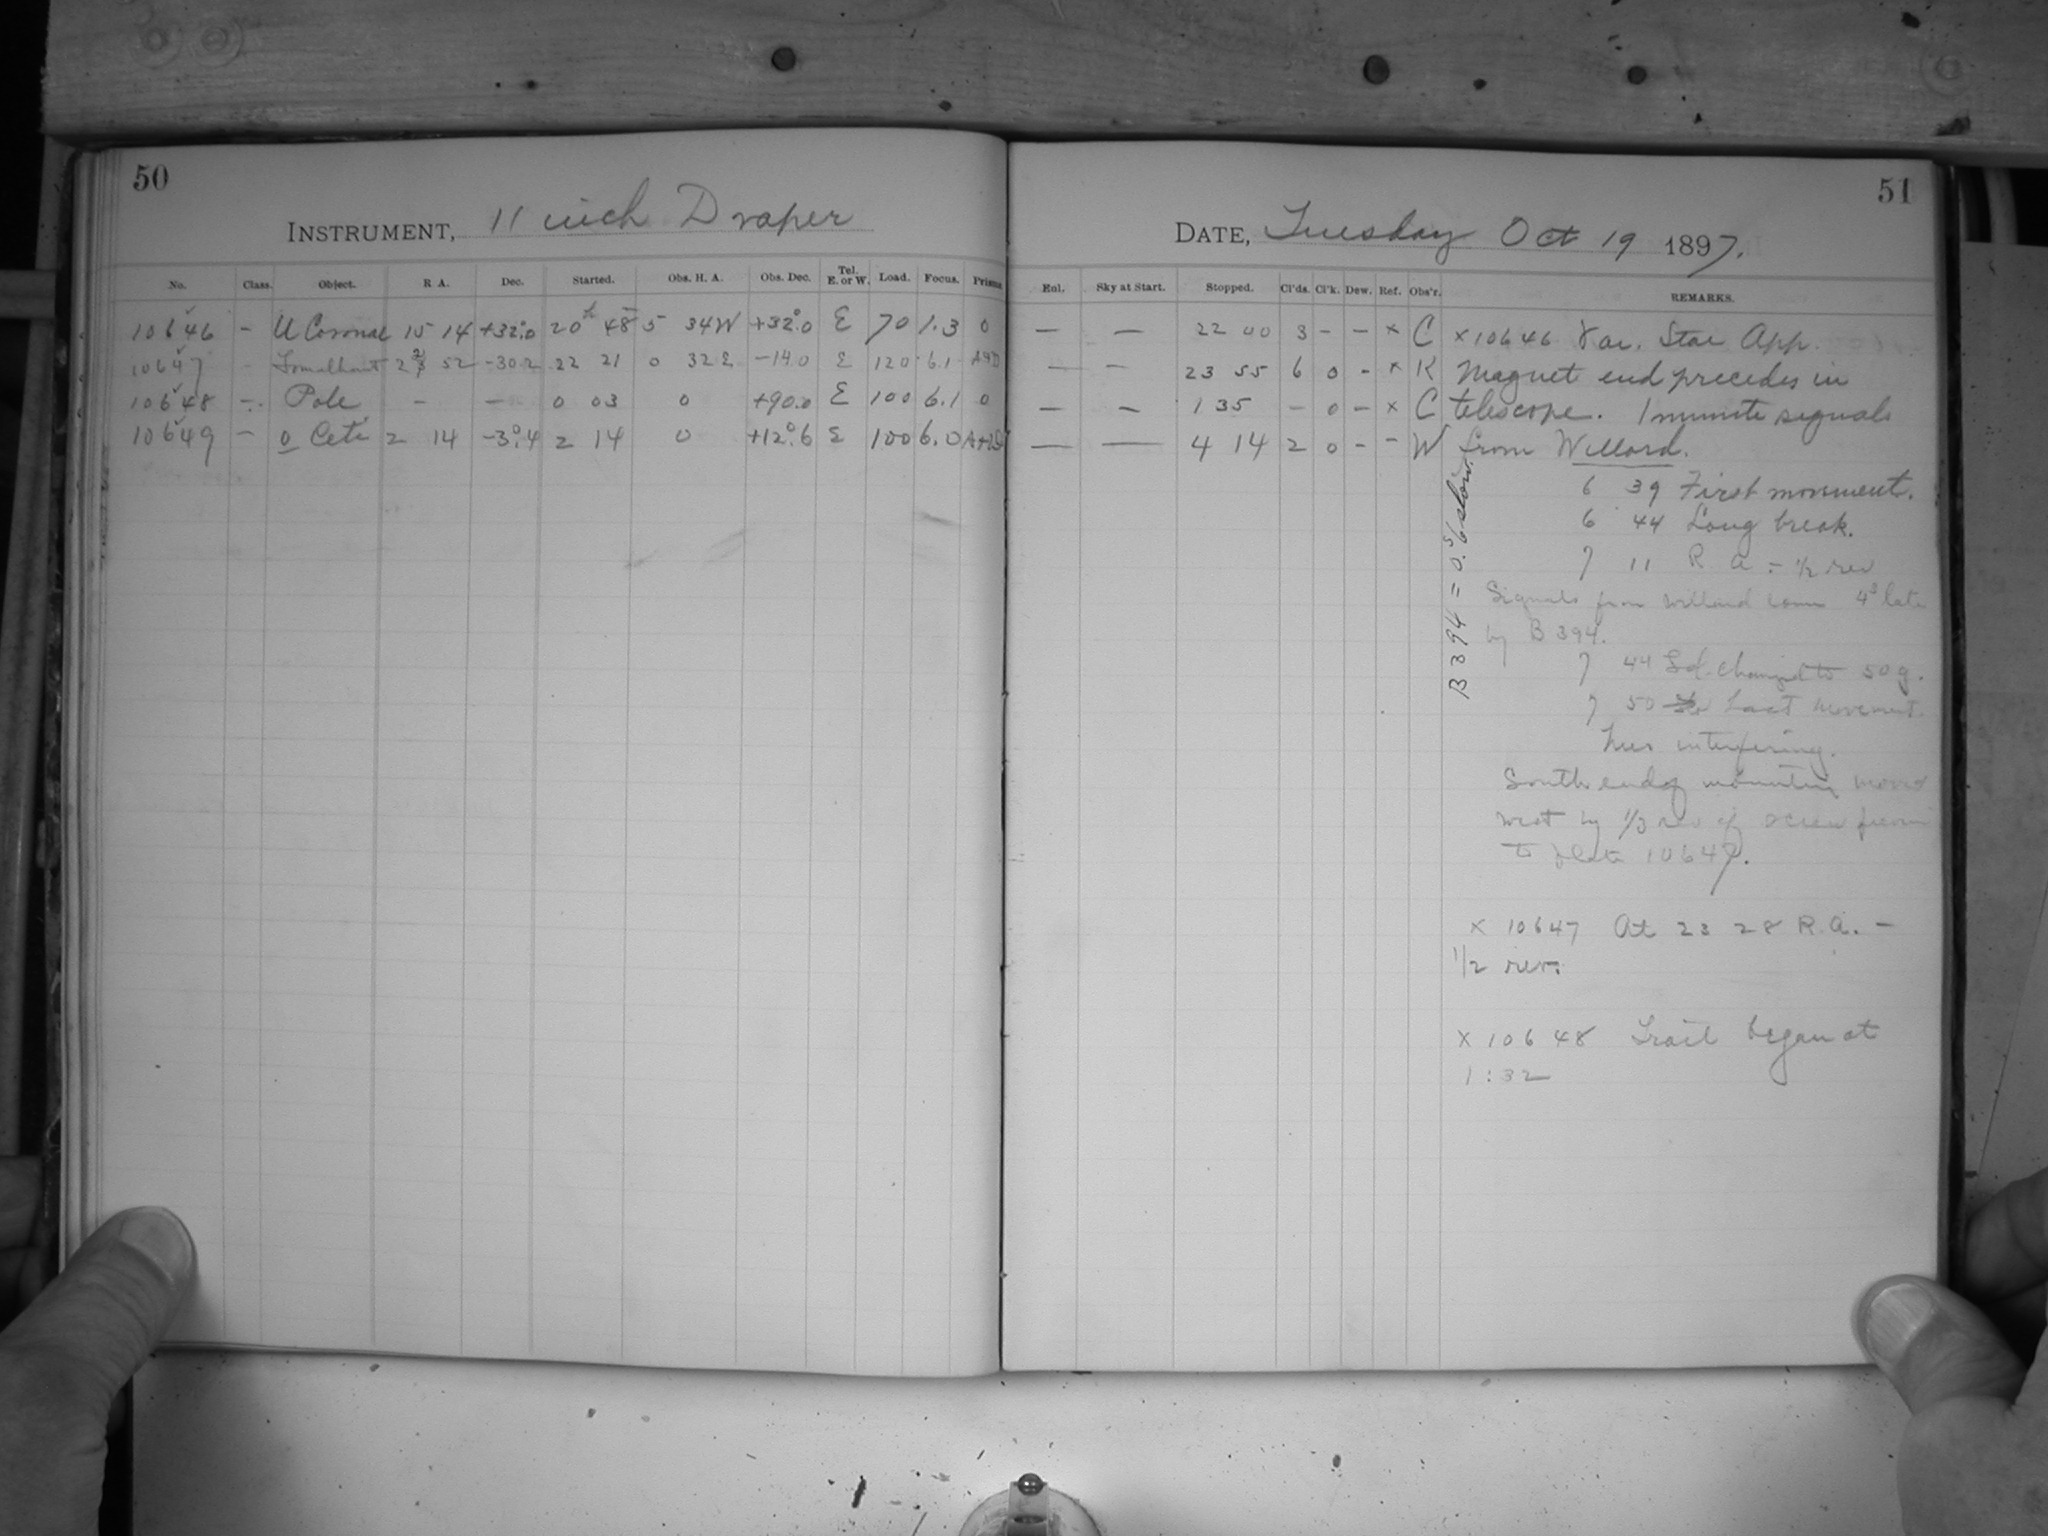 50
INSTRUMENT, 11 inch Draper
No. Class. Object. R A. Dec. Started. Obs. H. A. Obs. Dec. Tel. E. or W. Load. Focus. Prisms
10646 – U Coronae 15 14 +32°.0 20h 48 5 34W +32°.0 E 70 1.3 0
10647 - Fomalhaut 22 52 -30.2 22 21 0 32 E -14.0 E 120 6.1
10648 – Pole – – 0 03 0 +90.0 E 100 6.1 0
10649 – o Ceti 2 14 -3°.4 2 14 0 +12°.6 E 100 6.0
51
DATE, Tuesday Oct 19 1897.
Enl. Sky at Start. Stopped. Cl'ds. Cl'k. Dew. Ref. Obs'r. REMARKS.
– – 22 00 3 – – × C × 10646 Var. Star App.
– – 23 55 6 0 - × K Magnet end precedes in
– – 1 35 – 0 – × C telescope. 1 minute signals
– – 4 14 2 0 - - W from Willard.
6 39 First movement.
6 44 Long break.
7 11 R A - 1/2 rev
Signals from Willard come 4s late
by B 394.
7 44 changed to 50 g.
7 50 Last movement.
Trees interfering.
South end of mounting moved
west by 1/3 rev of screw
to plate 10647.
B 394 = 0.s6 slow.
× 10647 At 23 28 R.A. –
1/2 rev.
× 10648 Trail began at
1:32